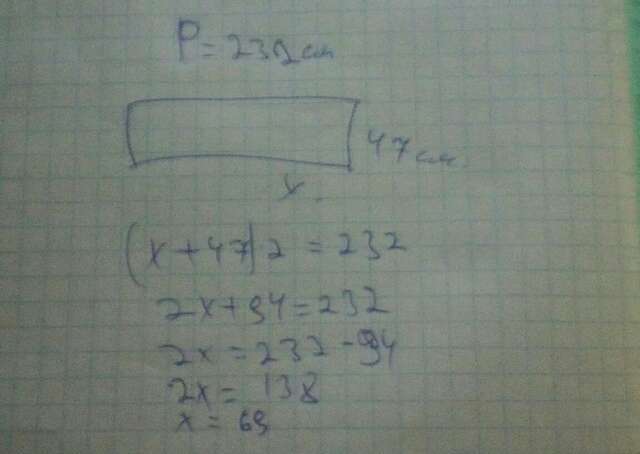 P = 232 см
47 см.
x
(x + 47) 2 = 232
2x + 94 = 232
2x = 232 - 94
2x = 138
x = 69